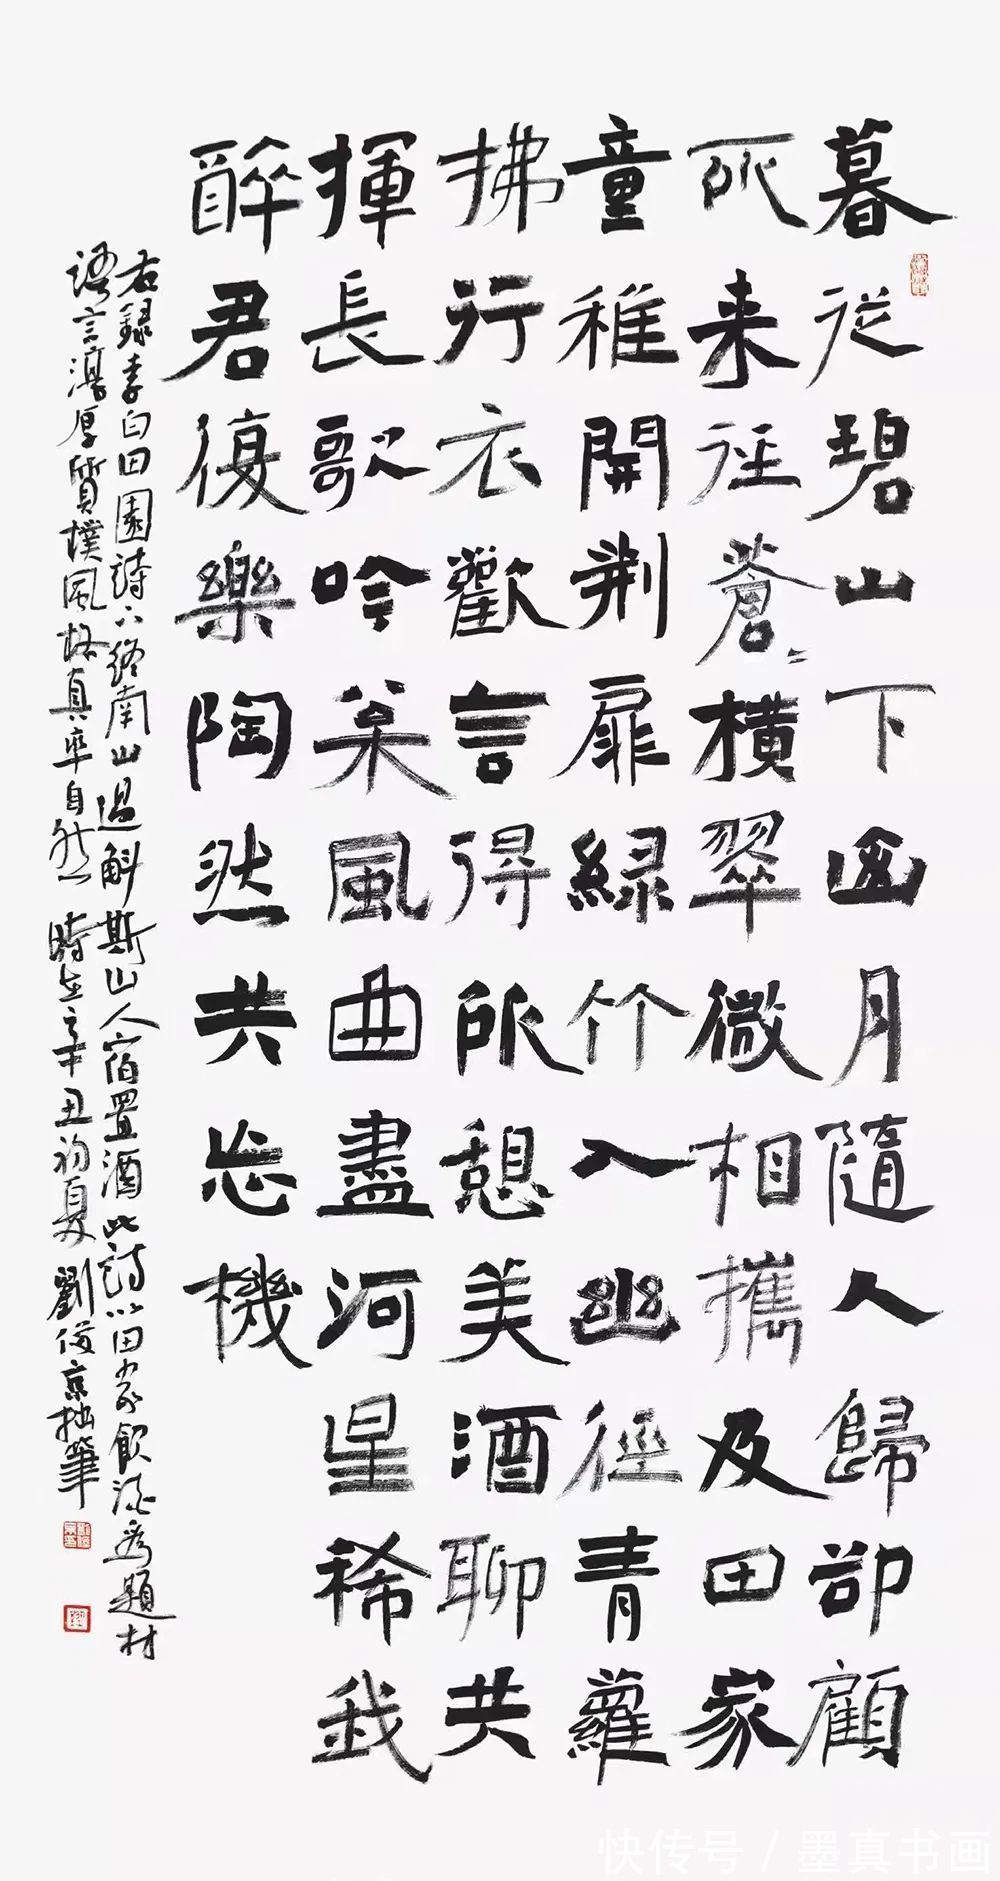 暮従碧山下山月隨人歸卻顧
所来徑蒼々橫翠微相攜及田家
童稚開荆扉緑竹入幽徑青蘿
拂行衣歡言得所憩美酒聊共
揮長歌吟枩風曲盡河星稀我
醉君復樂陶然共忘機
右録李白田園詩下終南山過斛斯山人宿置酒此詩以田家飲酒為題材
語言淳厚質樸風格真率自然時在辛丑初夏劉俊京拙筆
快传号 / 墨真书画